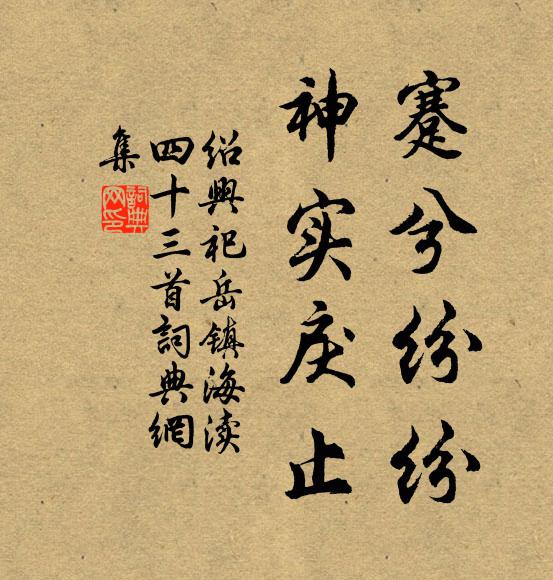 蹇兮纷纷
神实戾止
绍興祀岳镇海渎
四十三首詞典網
集
詞典
网印